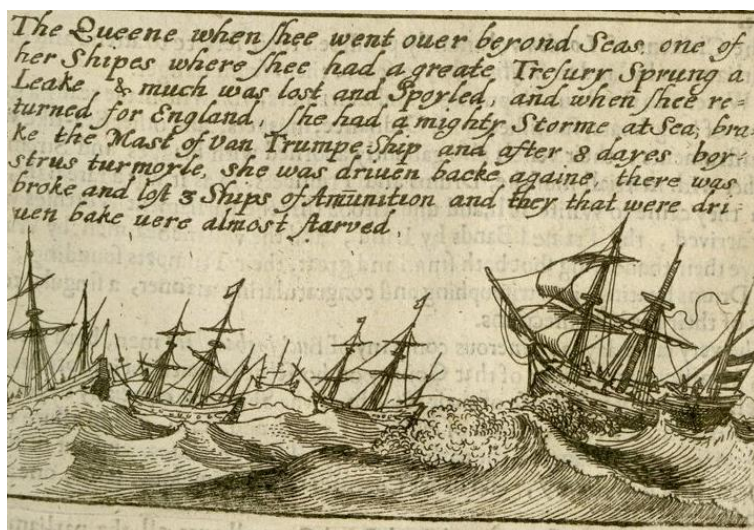 The Queene when shee went ouer beyond Seas, one of
her Shipes where shee had a greate Tresurr Sprung a
Leake & much was lost and Spoyled, and when shee re=
turned for England, she had a mighty Storme at Sea, bra=
ke the Mast of Van Trumpe Ship and after 8 dayes boy=
strus turmoyle, she was driuen backe againe, there was
broke and lost 3 Ships of Amūnition and they that were dri=
uen bake uere almost starved.